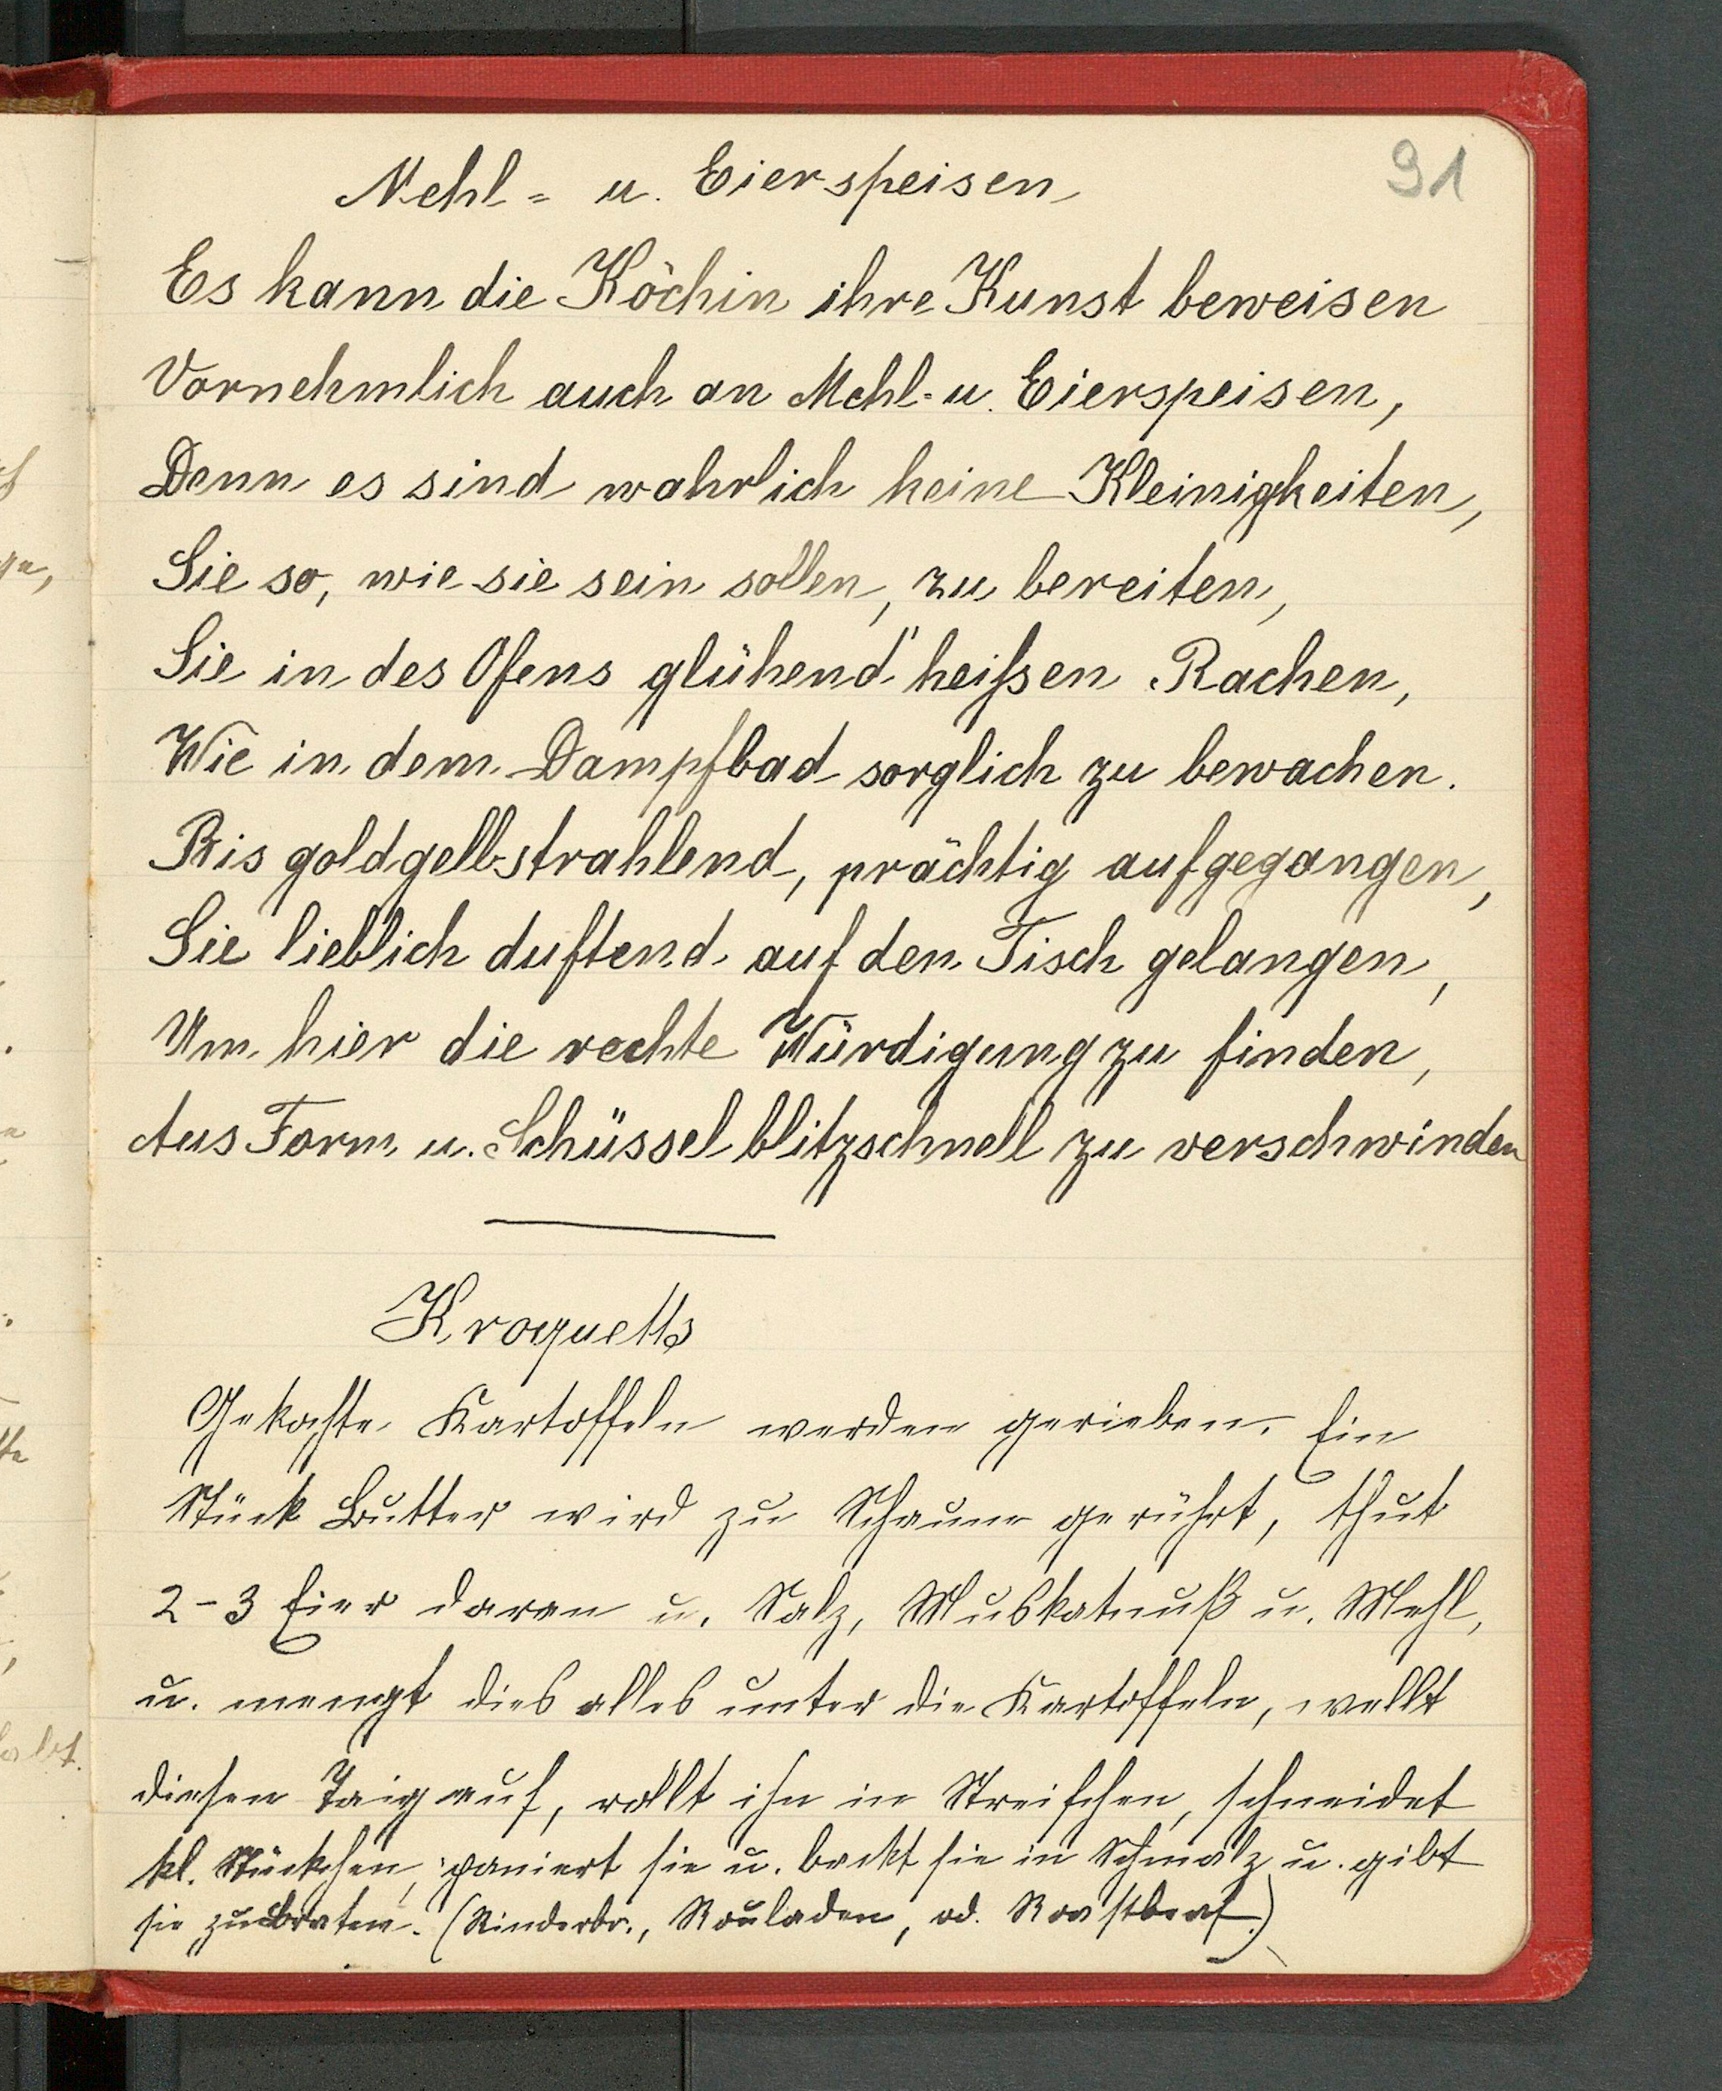 91
Mehl- u. Eierspeisen
Es kann die Köchin ihre Kunst beweisen
Vornehmlich auch an Mehl- u. Eierspeisen,
Denn es sind wahrlich keine Kleinigkeiten,
Sie so, wie sie sein sollen, zu bereiten,
Sie in des Ofens glühend heißen Rachen,
Wie in dem Dampfbad sorglich zu bewachen.
Bis goldgelbstrahlend, prächtig aufgegangen,
Sie lieblich duftend auf den Tisch gelangen,
Um hier die rechte Würdigung zu finden,
Aus Form u. Schüssel blitzschnell zu verschwinden
Kroquetts
Gekochte Kartoffeln werden gerieben. Ein
Stück Butter wird zu Schaum gerührt, thut
2-3 Eier daran u. Salz, Muskatnuß u. Mehl,
u. mengt dies alles unter die Kartoffeln, wellt
diesen Taig auf, rollt ihn in Streifchen, schneidet
kl. Stückchen, paniert sie u. backt sie in Schmalz u. gibt
sie zu Braten. (Rinderbr., Rouladen, od. Roastbeaf.)